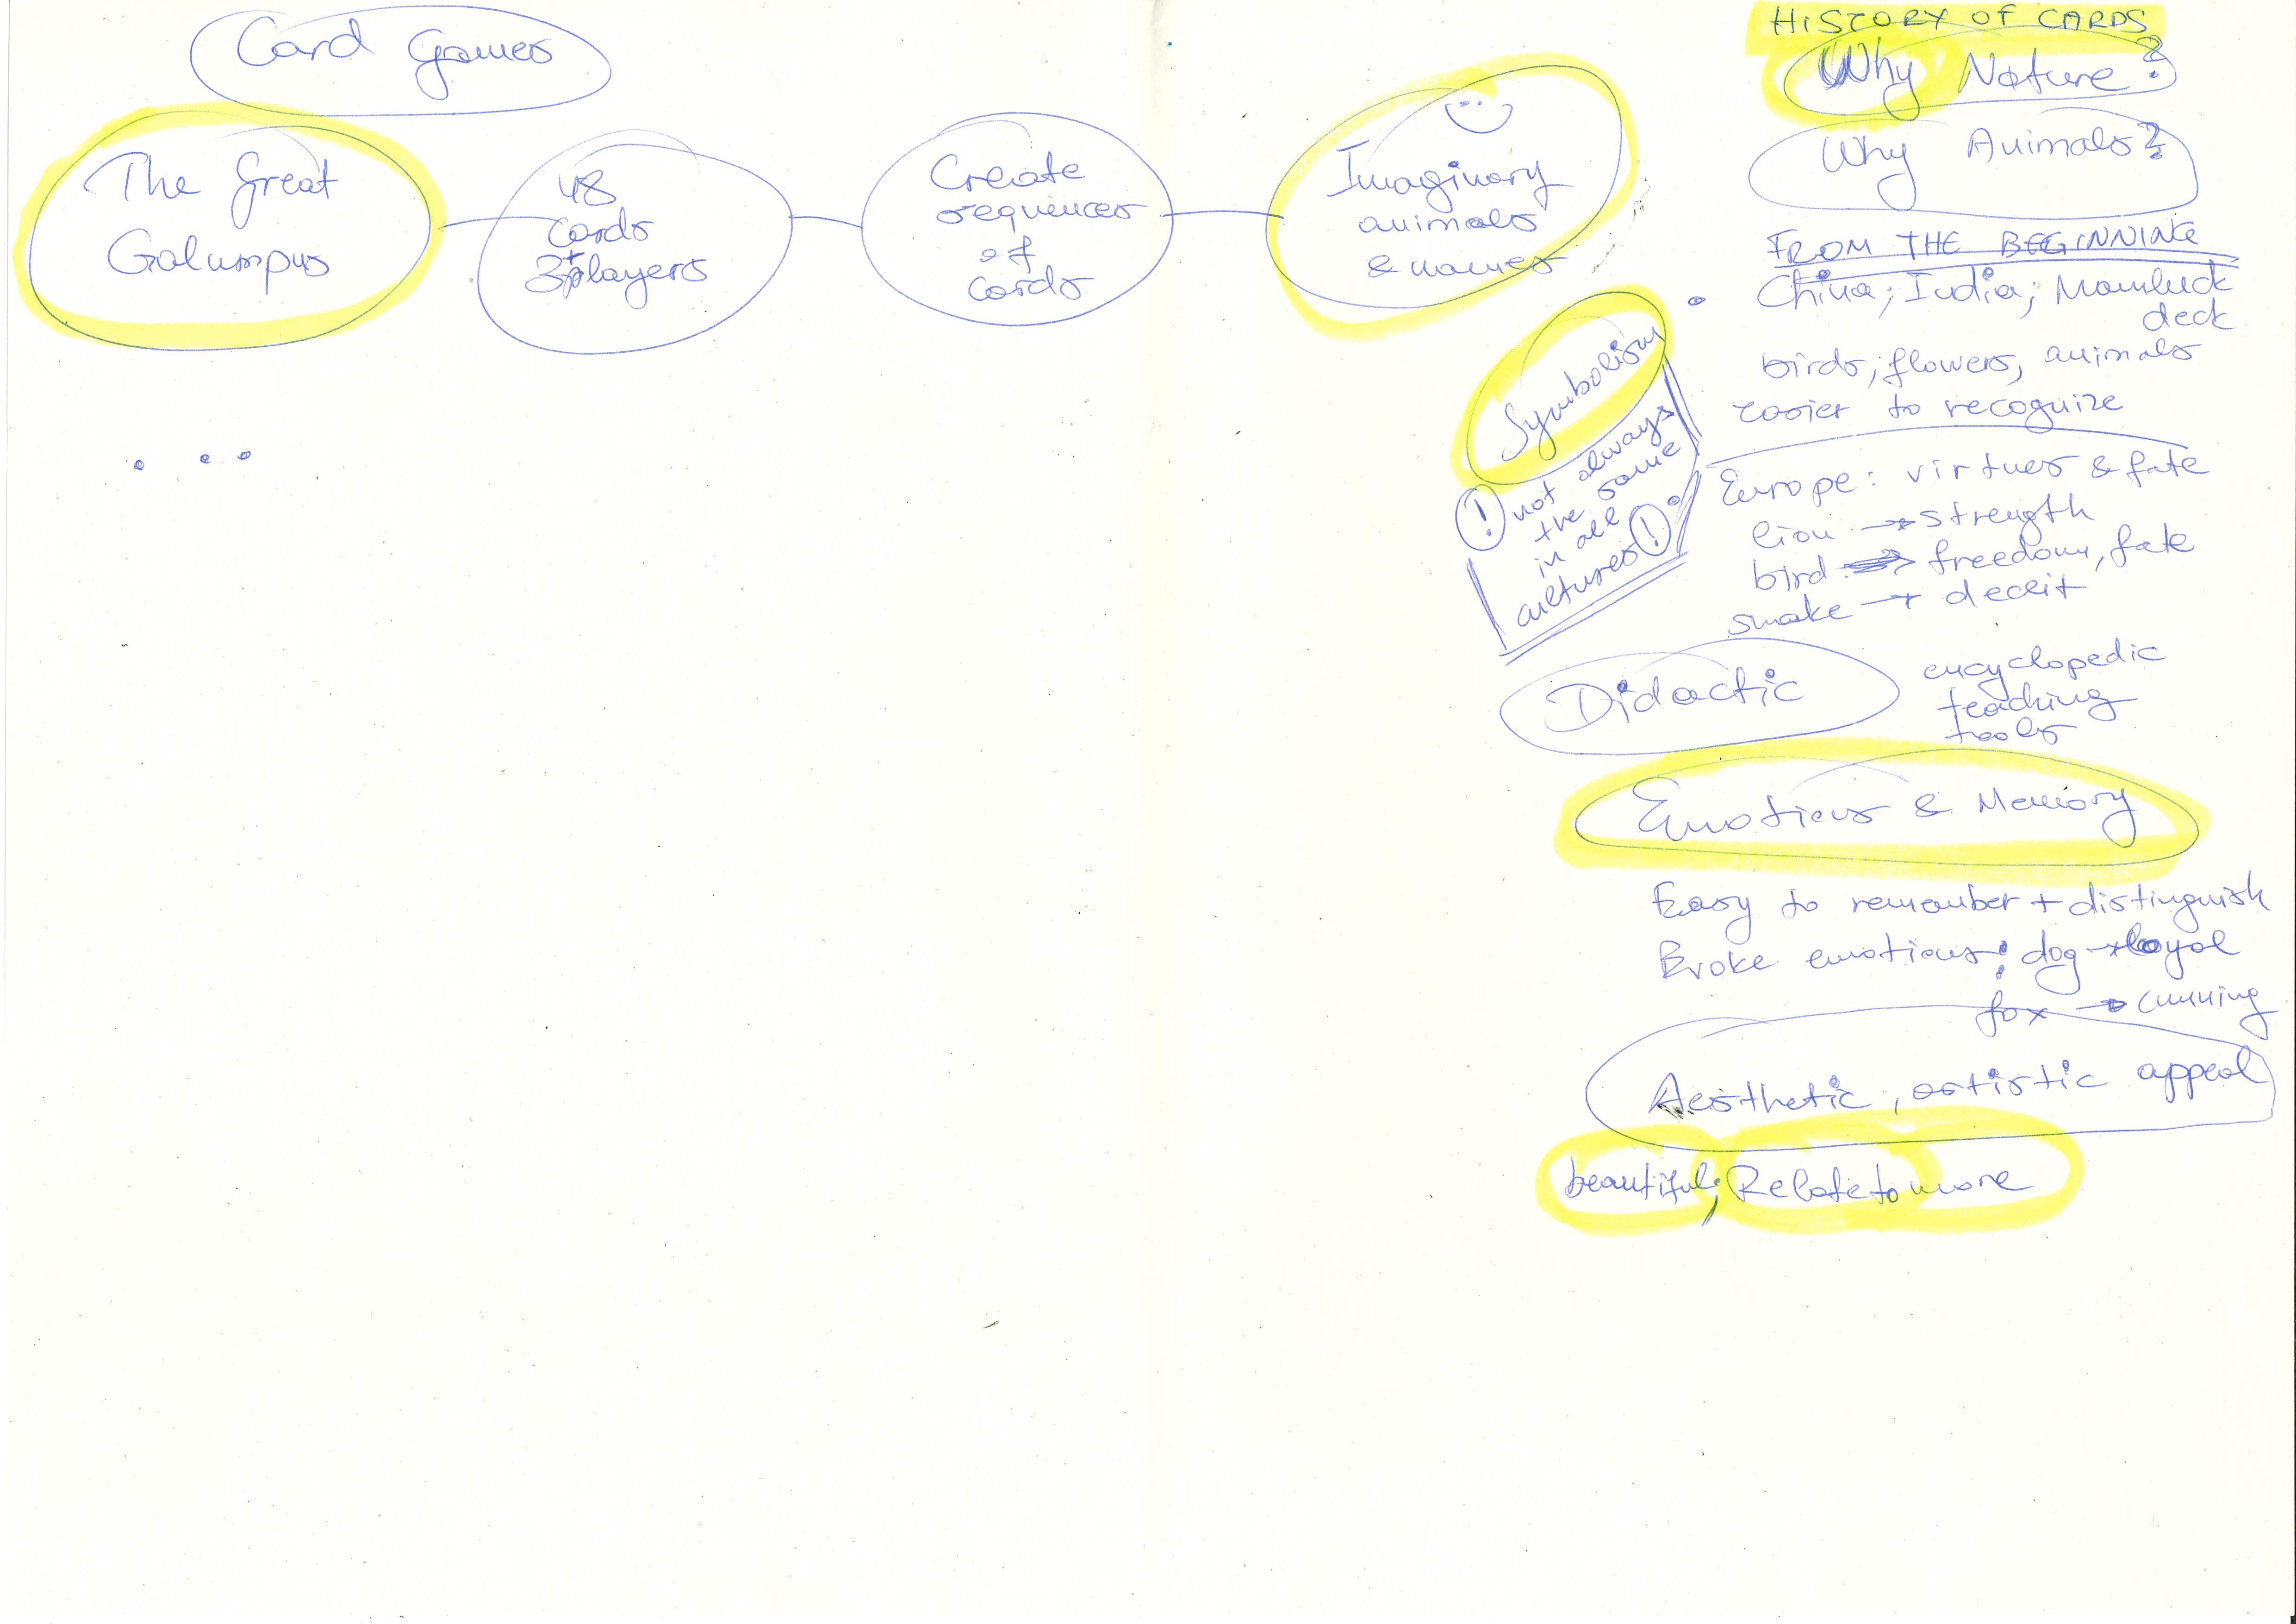 Card Games
The Great
Galumpus
48
cards
3+players
Create
sequences
of
cards
Imaginary
animals
& names
HISTORY OF CARDS
Why Nature?
Why Animals?
FROM THE BEGINNING
China; India; Mamluck
deck
birds, flowers, animals
easier to recognize
Symbolism
! not always
the same
in all
cultures !
Europe: virtues & fate
lion → strength
bird → freedom, fate
snake → deceit
Didactic
encyclopedic
teaching
tools
Emotions & Memory
Easy to remember + distinguish
Evoke emotions: dog → loyal
fox → cunning
Aesthetic, artistic appeal
beautiful; Relate to more